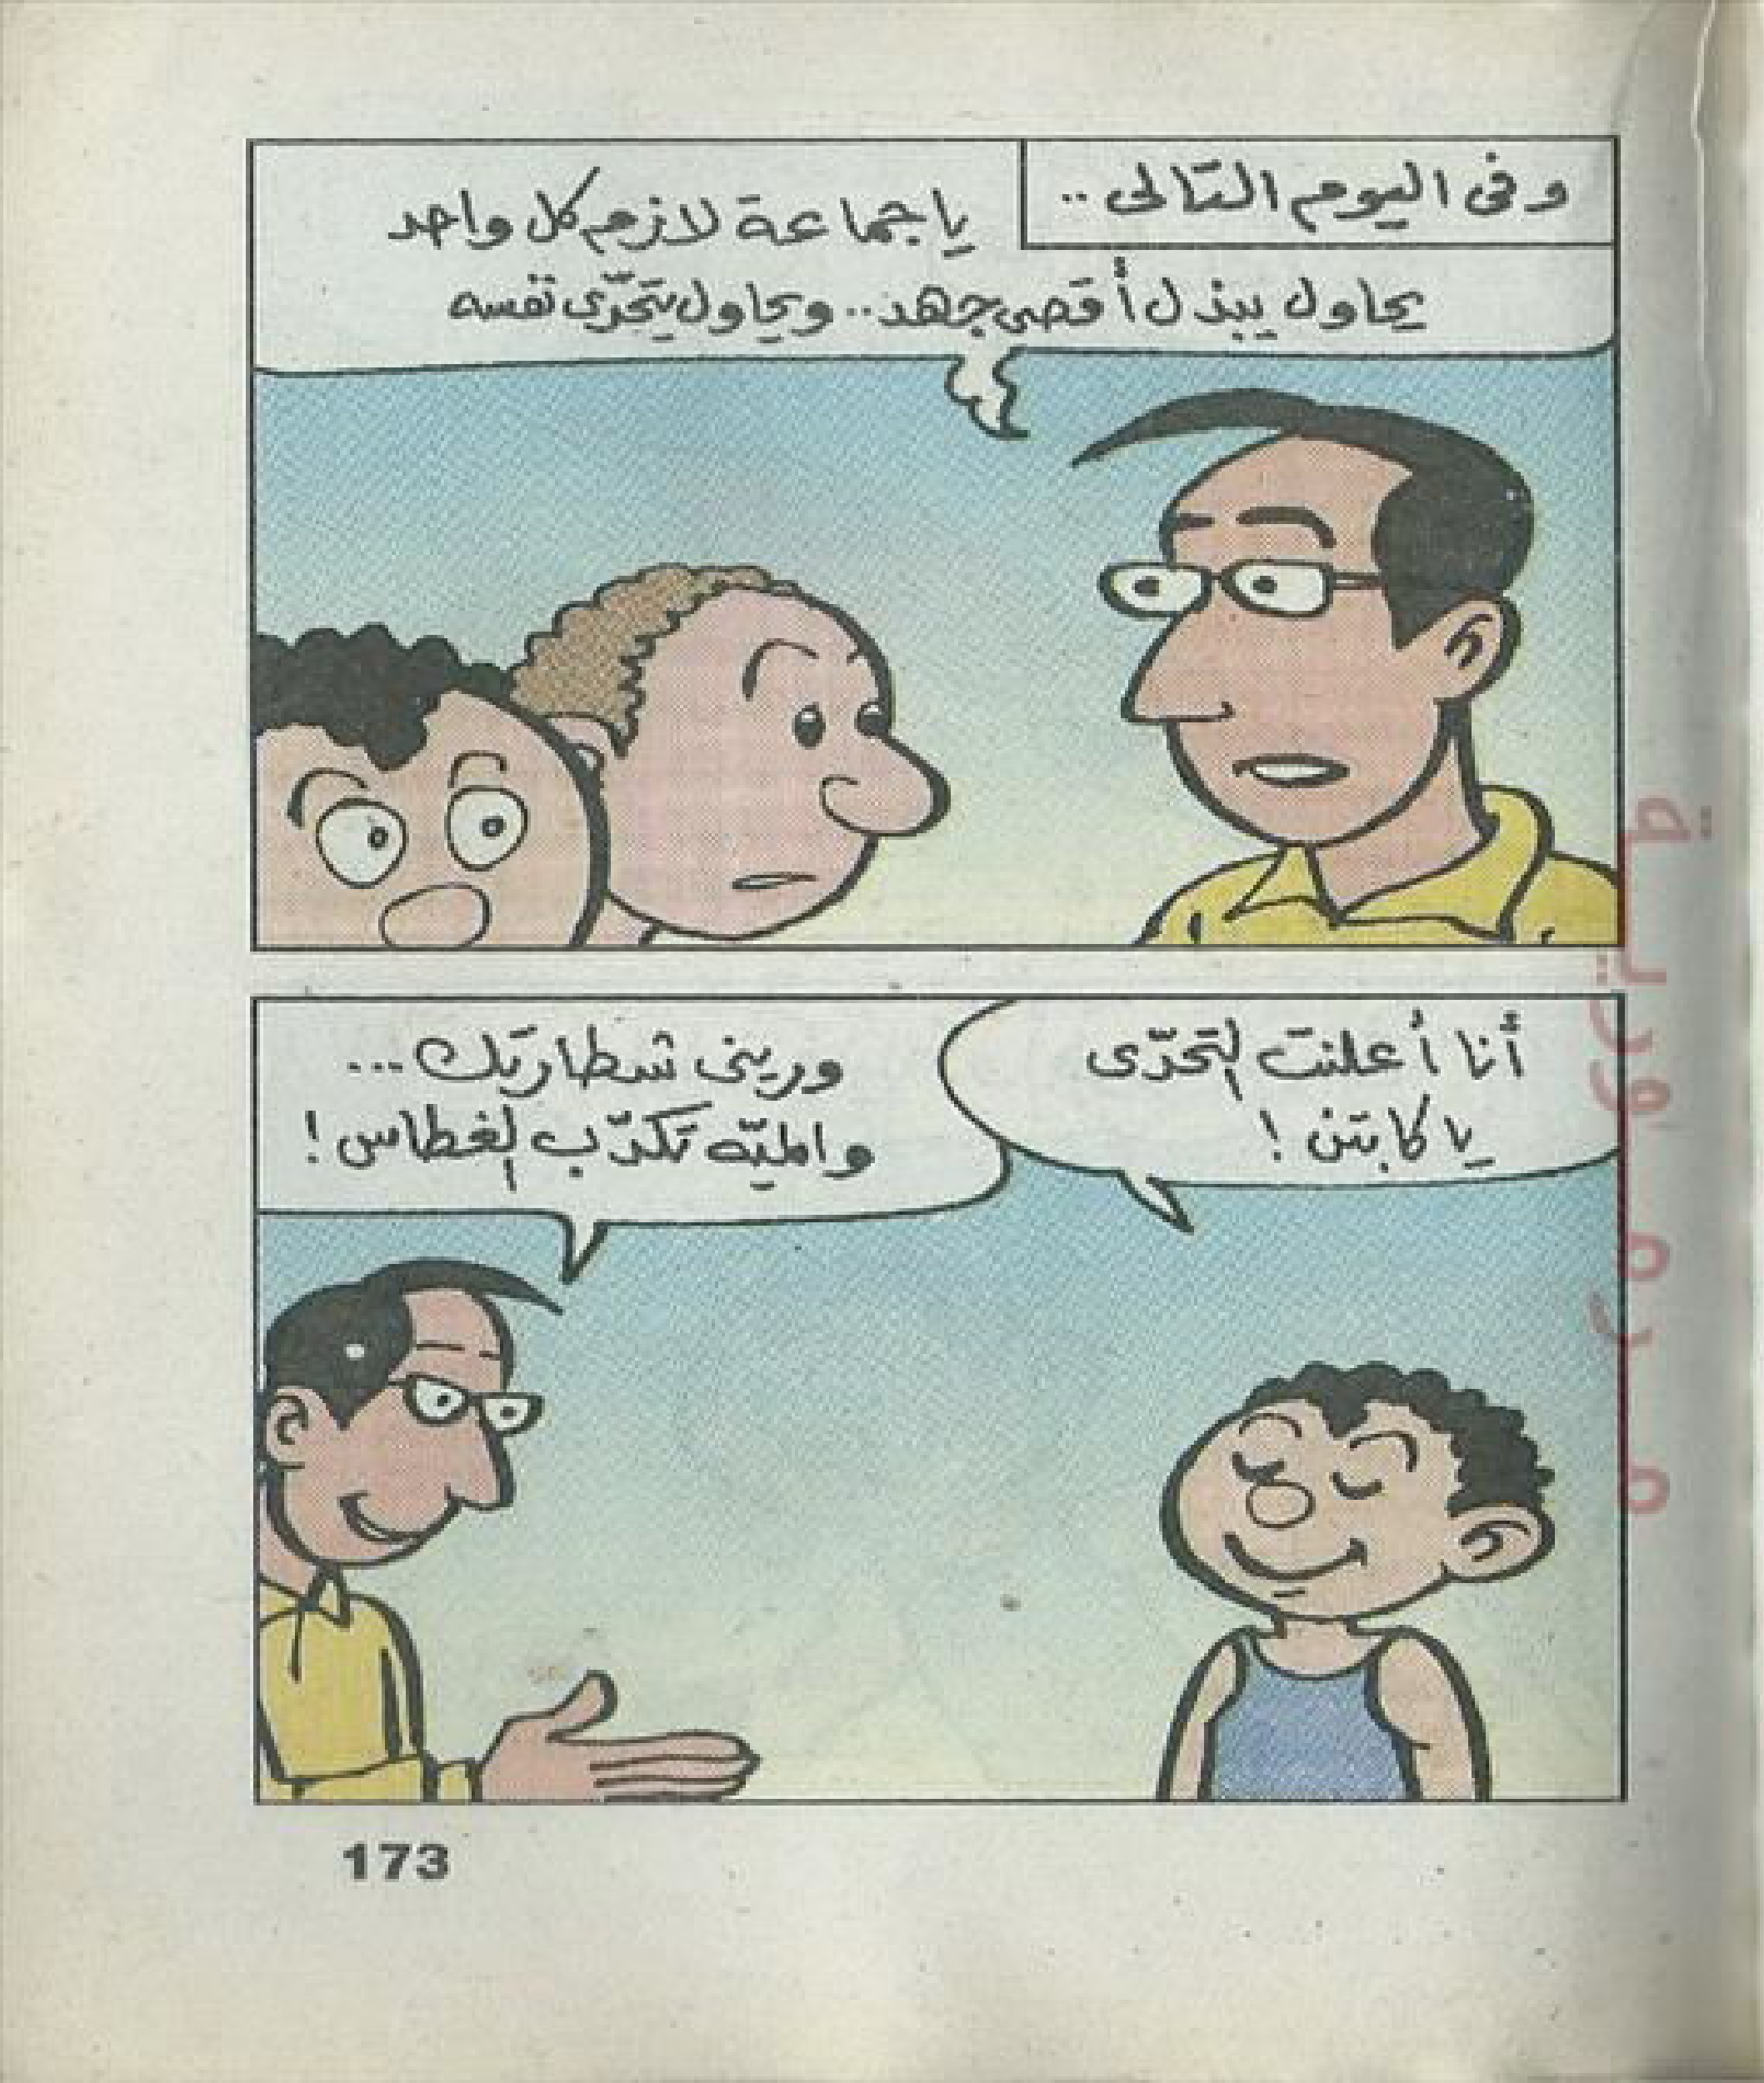 وفى اليوم التالى ..
يا جماعة لازم كل واحد
يحاول يبذل أقصى جهد .. ويحاول يتحدّى نفسه
أنا أعلنت التحدّى
يا كابتن !
ورينى شطارتك ...
والميّه تكدّب الغطاس !
173